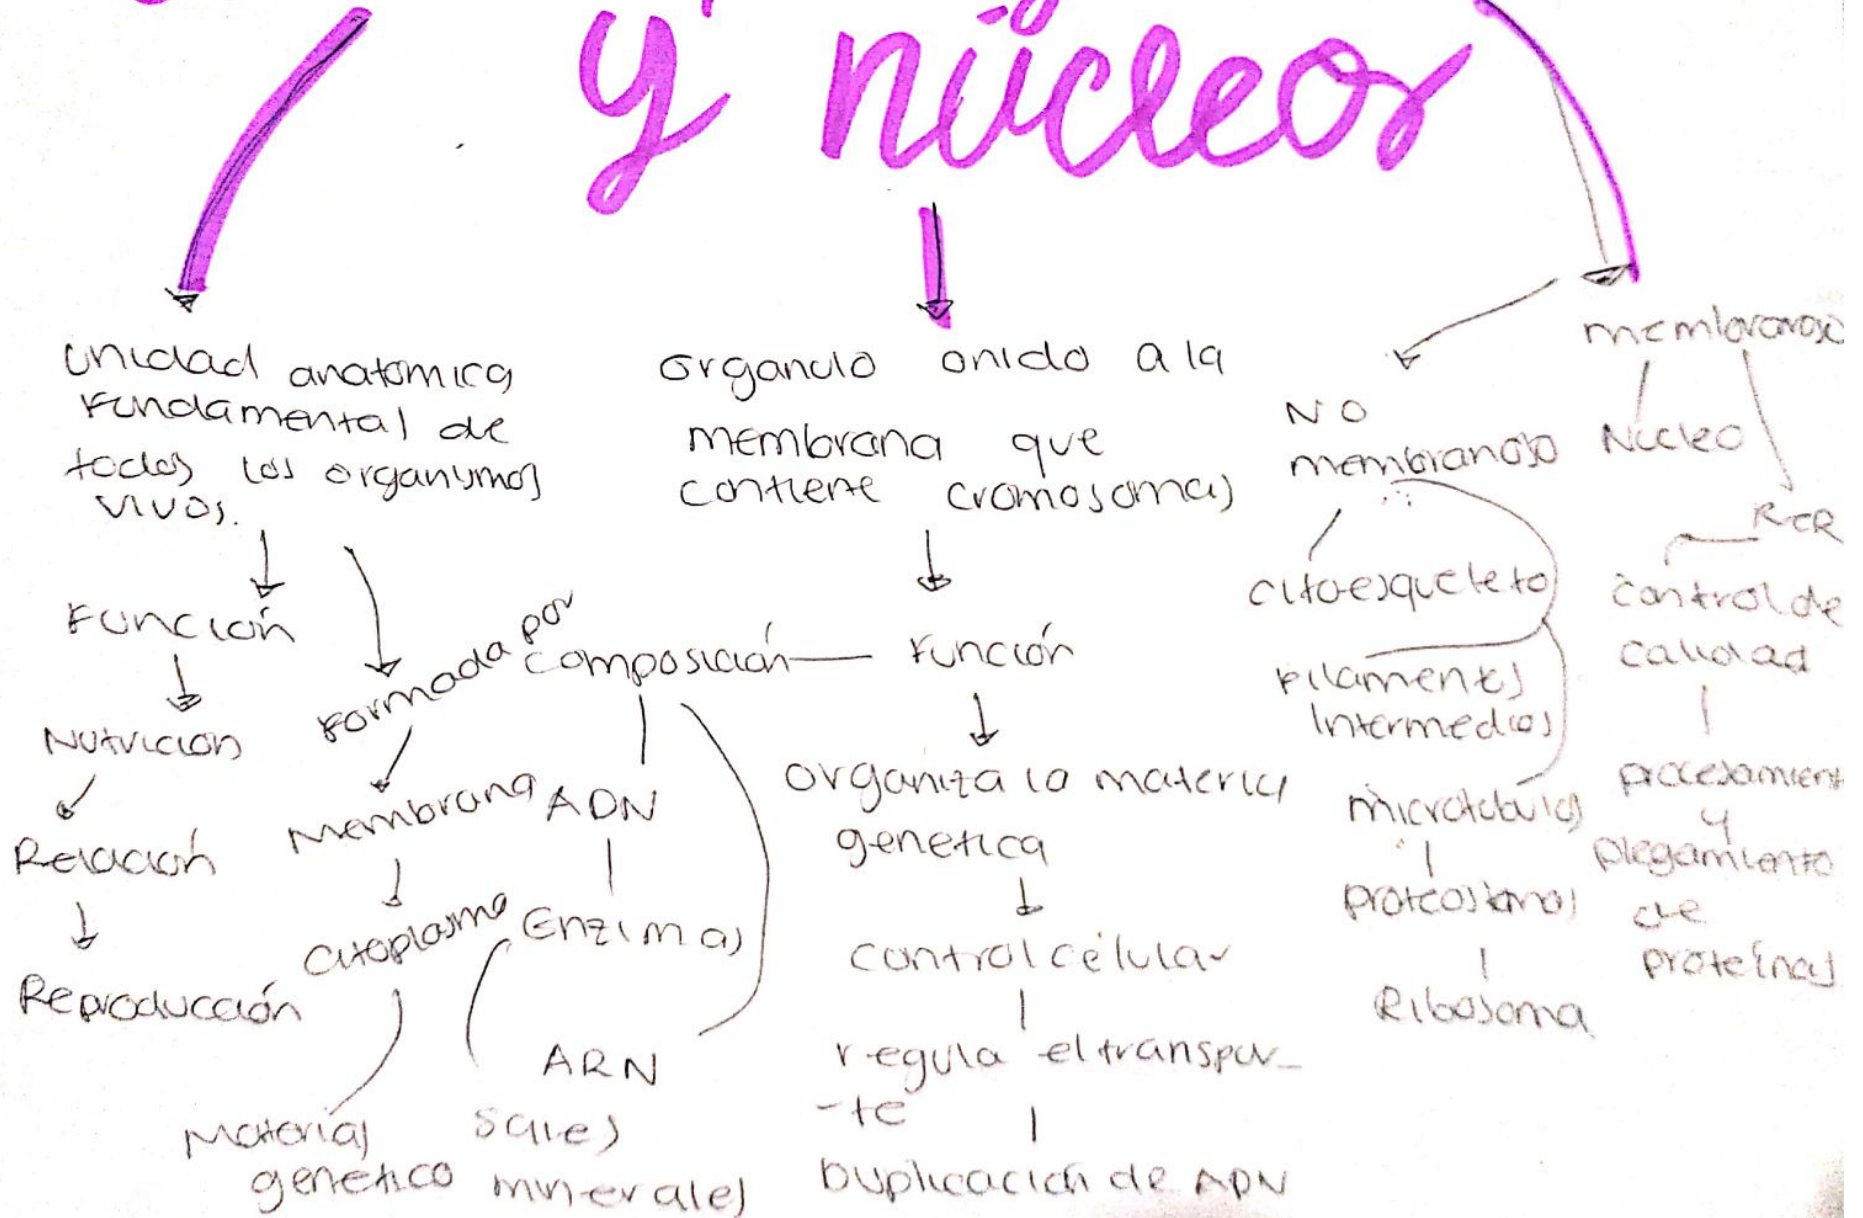 y núcleos
unidad anatomica
Fundamental de
todos los organismos
vivos.
Función
Nutrición
Relación
Reproducción
Formada por
Membrana
Citoplasma
Material
genetico
sales
minerales
organulo unido a la
membrana que
contiene cromosomas
Función
composición
ADN
Enzimas
ARN
organiza la materia
genetica
control célular
regula el transpor-
-te
Duplicación de ADN
NO
membranoso
citoesqueleto
Filamentos
Intermedios
microtubulos
proteosomas
Ribosoma
membranoso
Núcleo
RER
control de
calidad
procesamient
y
plegamiento
de
proteínas